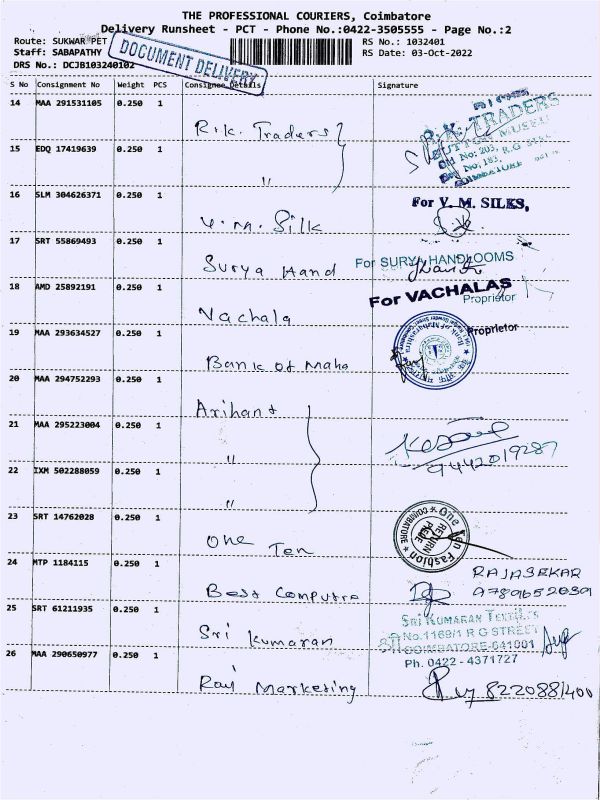 THE PROFESSIONAL COURIERS, Coimbatore
Delivery Runsheet - PCT - Phone No.:0422-3505555 - Page No.:2
Route: SUKWAR PET
RS No.: 1032401
Staff: SABAPATHY
RS Date: 03-Oct-2022
DRS No.: DCJB103240102
DOCUMENT DELIVERY
S No Consignment No Weight PCS Consignee Details Signature
14 MAA 291531105 0.250 1
R.K. Traders
R.K. TRADERS
15 EDQ 17419639 0.250 1
"
16 SLM 304626371 0.250 1
V. M. Silk
For V. M. SILKS,
17 SRT 55869493 0.250 1
Surya Hand
For SURYA HANDLOOMS
18 AMD 25892191 0.250 1
Vachala
For VACHALAS
Proprietor
19 MAA 293634527 0.250 1
Bank of Maha
Proprietor
Bank of Maharashtra
20 MAA 294752293 0.250 1
Arihant
21 MAA 295223004 0.250 1
"
9442019287
22 IXM 502288059 0.250 1
"
23 SRT 14762028 0.250 1
One Ten
One Ten Fashion
COIMBATORE
24 MTP 1184115 0.250 1
Best Computre
RAJASEKAR
9789652039
25 SRT 61211935 0.250 1
Sri Kumaran
SRI KUMARAN TEXTILES
No.1169/1 R G STREET
COIMBATORE-641001
Ph. 0422 - 4371727
26 MAA 290650977 0.250 1
Raj Marketing
8220881400